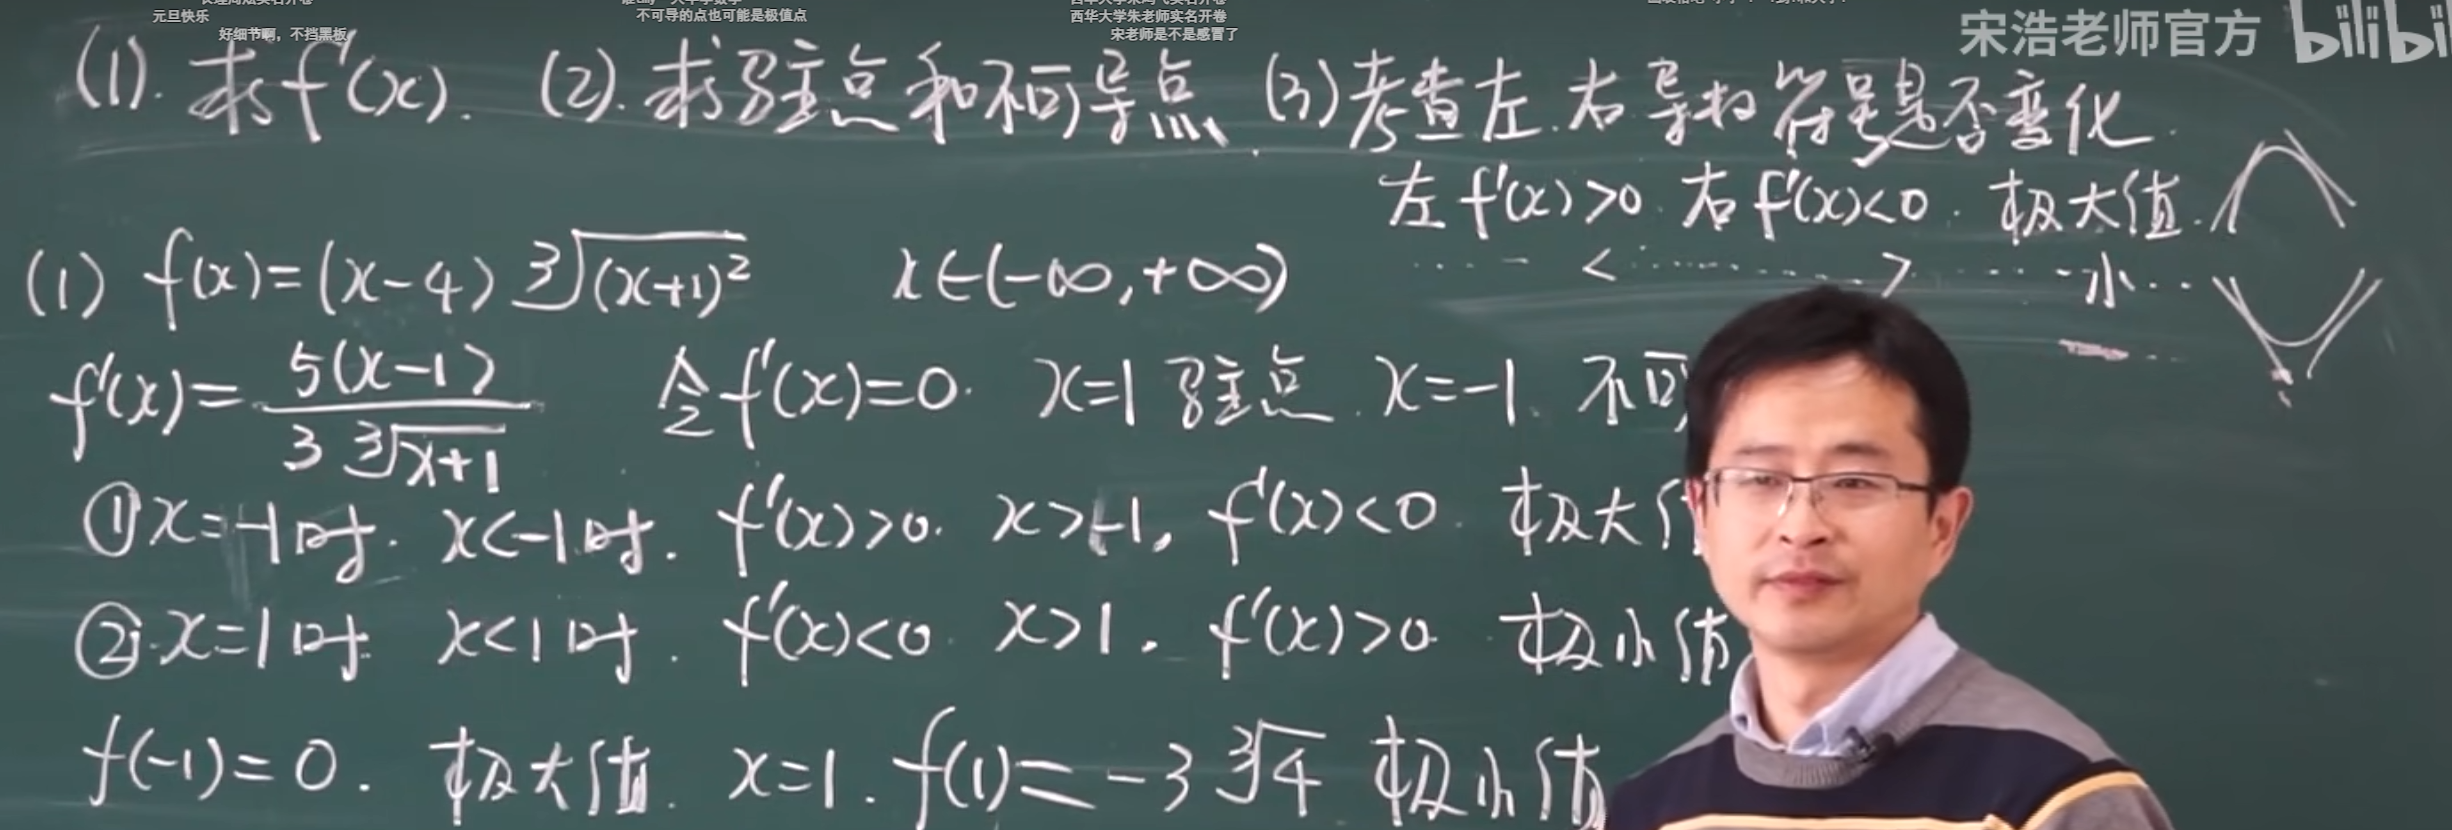 元旦快乐
不可导的点也可能是极值点
西华大学朱老师实名开卷
好细节啊，不挡黑板
宋老师是不是感冒了
宋浩老师官方 bilibili
(1). 求f'(x). (2). 求驻点和不可导点. (3)考查左.右导权符号是否变化.
左f'(x)>0 右f'(x)<0. 极大值.
···- < ········ > ····-小··
(1) f(x)=(x-4)∛(x+1)² x∈(-∞,+∞)
f'(x)=5(x-1)/(3∛(x+1)) 令f'(x)=0. x=1 驻点. x=-1. 不可
①x=-1时. x<-1时. f'(x)>0. x>-1, f'(x)<0. 极大
②x=1时 x<1时. f'(x)<0. x>1. f'(x)>0. 极小值
f(-1)=0. 极大值. x=1. f(1)=-3∛4 极小值